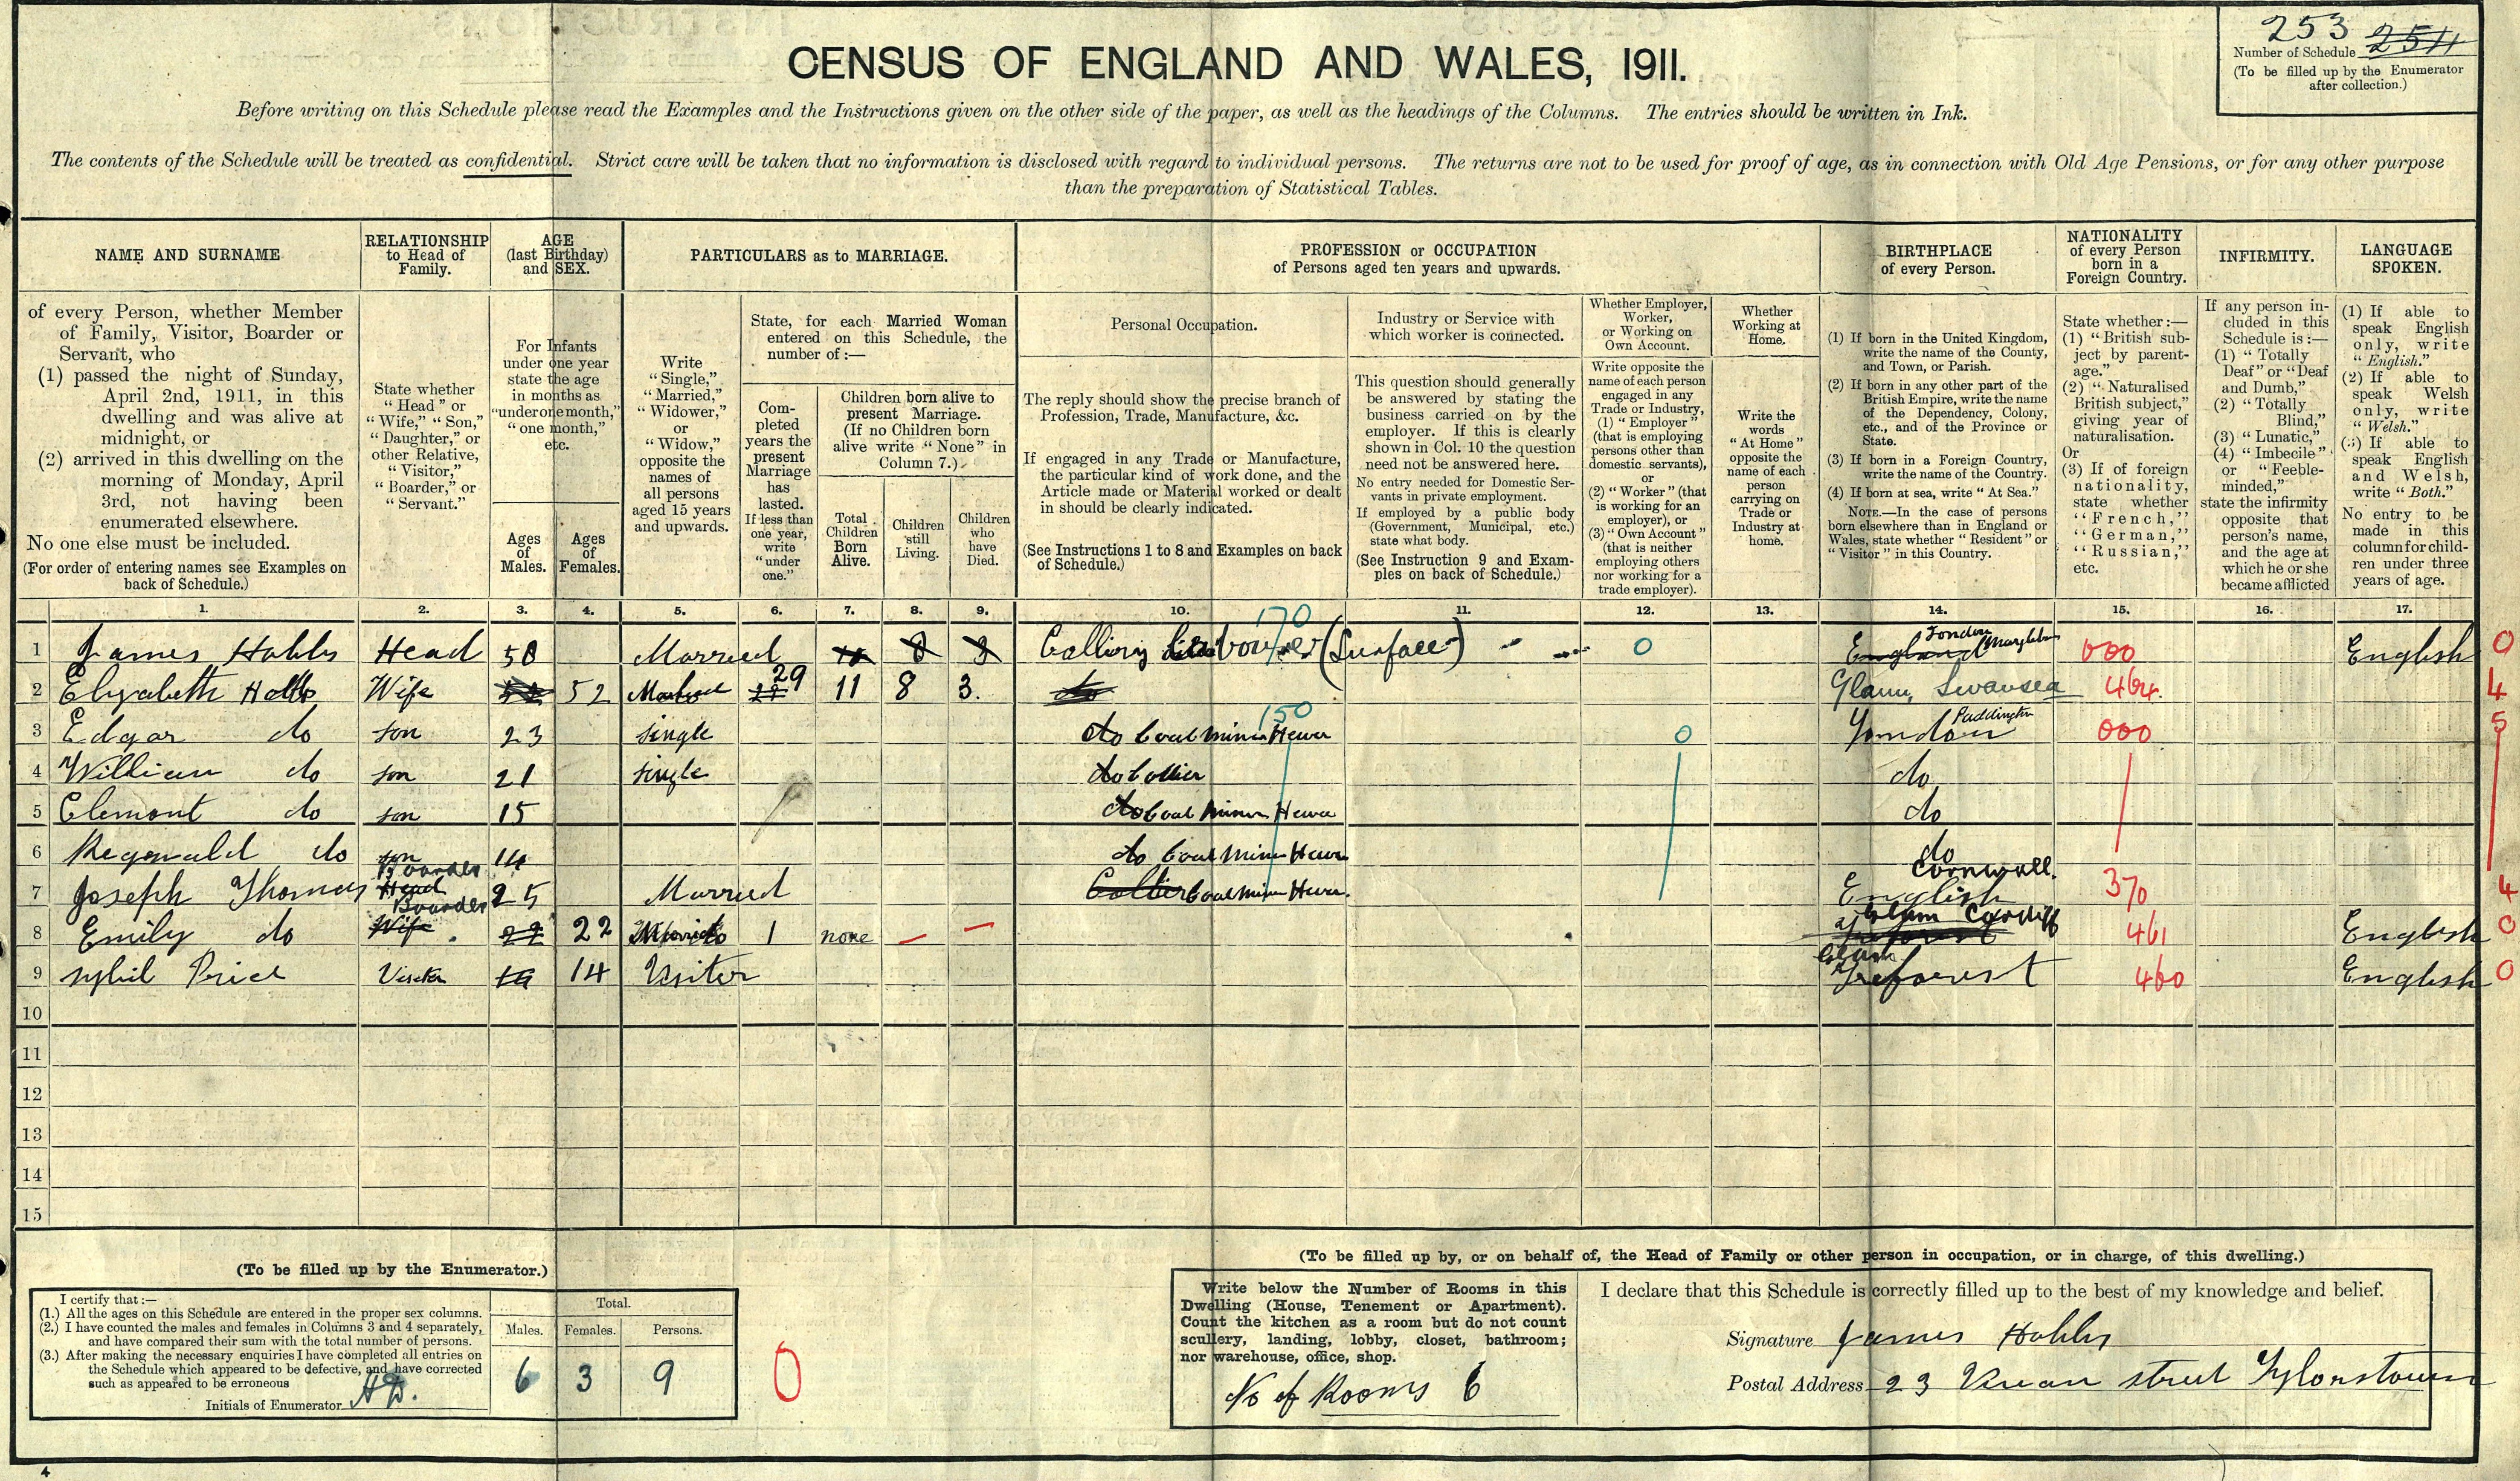 253 2511
Number of Schedule
(To be filled up by the Enumerator
after collection.)
CENSUS OF ENGLAND AND WALES, 1911.
Before writing on this Schedule please read the Examples and the Instructions given on the other side of the paper, as well as the headings of the Columns. The entries should be written in Ink.
The contents of the Schedule will be treated as confidential. Strict care will be taken that no information is disclosed with regard to individual persons. The returns are not to be used for proof of age, as in connection with Old Age Pensions, or for any other purpose
than the preparation of Statistical Tables.
NAME AND SURNAME
of every Person, whether Member
of Family, Visitor, Boarder or
Servant, who
(1) passed the night of Sunday,
April 2nd, 1911, in this
dwelling and was alive at
midnight, or
(2) arrived in this dwelling on the
morning of Monday, April
3rd, not having been
enumerated elsewhere.
No one else must be included.
(For order of entering names see Examples on
back of Schedule.)
RELATIONSHIP
to Head of
Family.
State whether
"Head" or
"Wife," "Son,"
"Daughter," or
other Relative,
"Visitor,"
"Boarder," or
"Servant."
AGE
(last Birthday)
and SEX.
For Infants
under one year
state the age
in months as
"under one month,"
"one month,"
etc.
Ages
of
Males.
Ages
of
Females.
PARTICULARS as to MARRIAGE.
Write
"Single,"
"Married,"
"Widower,"
or
"Widow,"
opposite the
names of
all persons
aged 15 years
and upwards.
State, for each Married Woman
entered on this Schedule, the
number of :—
Com-
pleted
years the
present
Marriage
has
lasted.
If less than
one year,
write
"under
one."
Children born alive to
present Marriage.
(If no Children born
alive write "None" in
Column 7.)
Total
Children
Born
Alive.
Children
still
Living.
Children
who
have
Died.
PROFESSION or OCCUPATION
of Persons aged ten years and upwards.
Personal Occupation.
The reply should show the precise branch of
Profession, Trade, Manufacture, &c.
If engaged in any Trade or Manufacture,
the particular kind of work done, and the
Article made or Material worked or dealt
in should be clearly indicated.
(See Instructions 1 to 8 and Examples on back
of Schedule.)
Industry or Service with
which worker is connected.
This question should generally
be answered by stating the
business carried on by the
employer. If this is clearly
shown in Col. 10 the question
need not be answered here.
No entry needed for Domestic Ser-
vants in private employment.
If employed by a public body
(Government, Municipal, etc.)
state what body.
(See Instruction 9 and Exam-
ples on back of Schedule.)
Whether Employer,
Worker,
or Working on
Own Account.
Write opposite the
name of each person
engaged in any
Trade or Industry,
(1) "Employer"
(that is employing
persons other than
domestic servants),
or
(2) "Worker" (that
is working for an
employer), or
(3) "Own Account"
(that is neither
employing others
nor working for a
trade employer).
Whether
Working at
Home.
Write the
words
"At Home"
opposite the
name of each
person
carrying on
Trade or
Industry at
home.
BIRTHPLACE
of every Person.
(1) If born in the United Kingdom,
write the name of the County,
and Town, or Parish.
(2) If born in any other part of the
British Empire, write the name
of the Dependency, Colony,
etc., and of the Province or
State.
(3) If born in a Foreign Country,
write the name of the Country.
(4) If born at sea, write "At Sea."
NOTE.—In the case of persons
born elsewhere than in England or
Wales, state whether "Resident" or
"Visitor" in this Country.
NATIONALITY
of every Person
born in a
Foreign Country.
State whether :—
(1) "British sub-
ject by parent-
age."
(2) "Naturalised
British subject,"
giving year of
naturalisation.
Or
(3) If of foreign
nationality,
state whether
"French,"
"German,"
"Russian,"
etc.
INFIRMITY.
If any person in-
cluded in this
Schedule is :—
(1) "Totally
Deaf" or "Deaf
and Dumb,"
(2) "Totally
Blind,"
(3) "Lunatic,"
(4) "Imbecile"
or "Feeble-
minded,"
state the infirmity
opposite that
person's name,
and the age at
which he or she
became afflicted
LANGUAGE
SPOKEN.
(1) If able to
speak English
only, write
"English."
(2) If able to
speak Welsh
only, write
"Welsh."
(3) If able to
speak English
and Welsh,
write "Both."
No entry to be
made in this
column for child-
ren under three
years of age.
1. 2. 3. 4. 5. 6. 7. 8. 9. 10. 11. 12. 13. 14. 15. 16. 17.
170
1 James Hobbs Head 58 Married 8 3 Colliery Labourer (Surface) 0 England London Marylebn 000 English 0
2 Elizabeth Hobbs Wife 52 52 Married 29 11 8 3. do Glam, Swansea 464. 4
150
3 Edgar do son 23 single do Coal miner Hewer 0 London Paddington 000 5
4 William do son 21 single do Collier do
5 Clemont do son 15 do Coal Miner Hewer do
6 Regenald do son 14 do Coal Miner Hewer do
7 Joseph Thomas Head Boarder 25 Married Collier Coal miner Hewer. English Cornwall. 370 4
8 Emily do Wife Boarder 22 22 Married 1 none — — Treforest Glam Cardiff 461 English 0
9 Sybil Price Visitor 14 14 Visiter Glam Treforest 460 English 0
10
11
12
13
14
15
(To be filled up by the Enumerator.)
I certify that :—
(1.) All the ages on this Schedule are entered in the proper sex columns.
(2.) I have counted the males and females in Columns 3 and 4 separately,
and have compared their sum with the total number of persons.
(3.) After making the necessary enquiries I have completed all entries on
the Schedule which appeared to be defective, and have corrected
such as appeared to be erroneous
Initials of Enumerator H D.
Total.
Males. Females. Persons.
6 3 9
0
(To be filled up by, or on behalf of, the Head of Family or other person in occupation, or in charge, of this dwelling.)
Write below the Number of Rooms in this
Dwelling (House, Tenement or Apartment).
Count the kitchen as a room but do not count
scullery, landing, lobby, closet, bathroom;
nor warehouse, office, shop.
No of Rooms 6
I declare that this Schedule is correctly filled up to the best of my knowledge and belief.
Signature James Hobbs
Postal Address 23 Vivian street Tylorstown
4